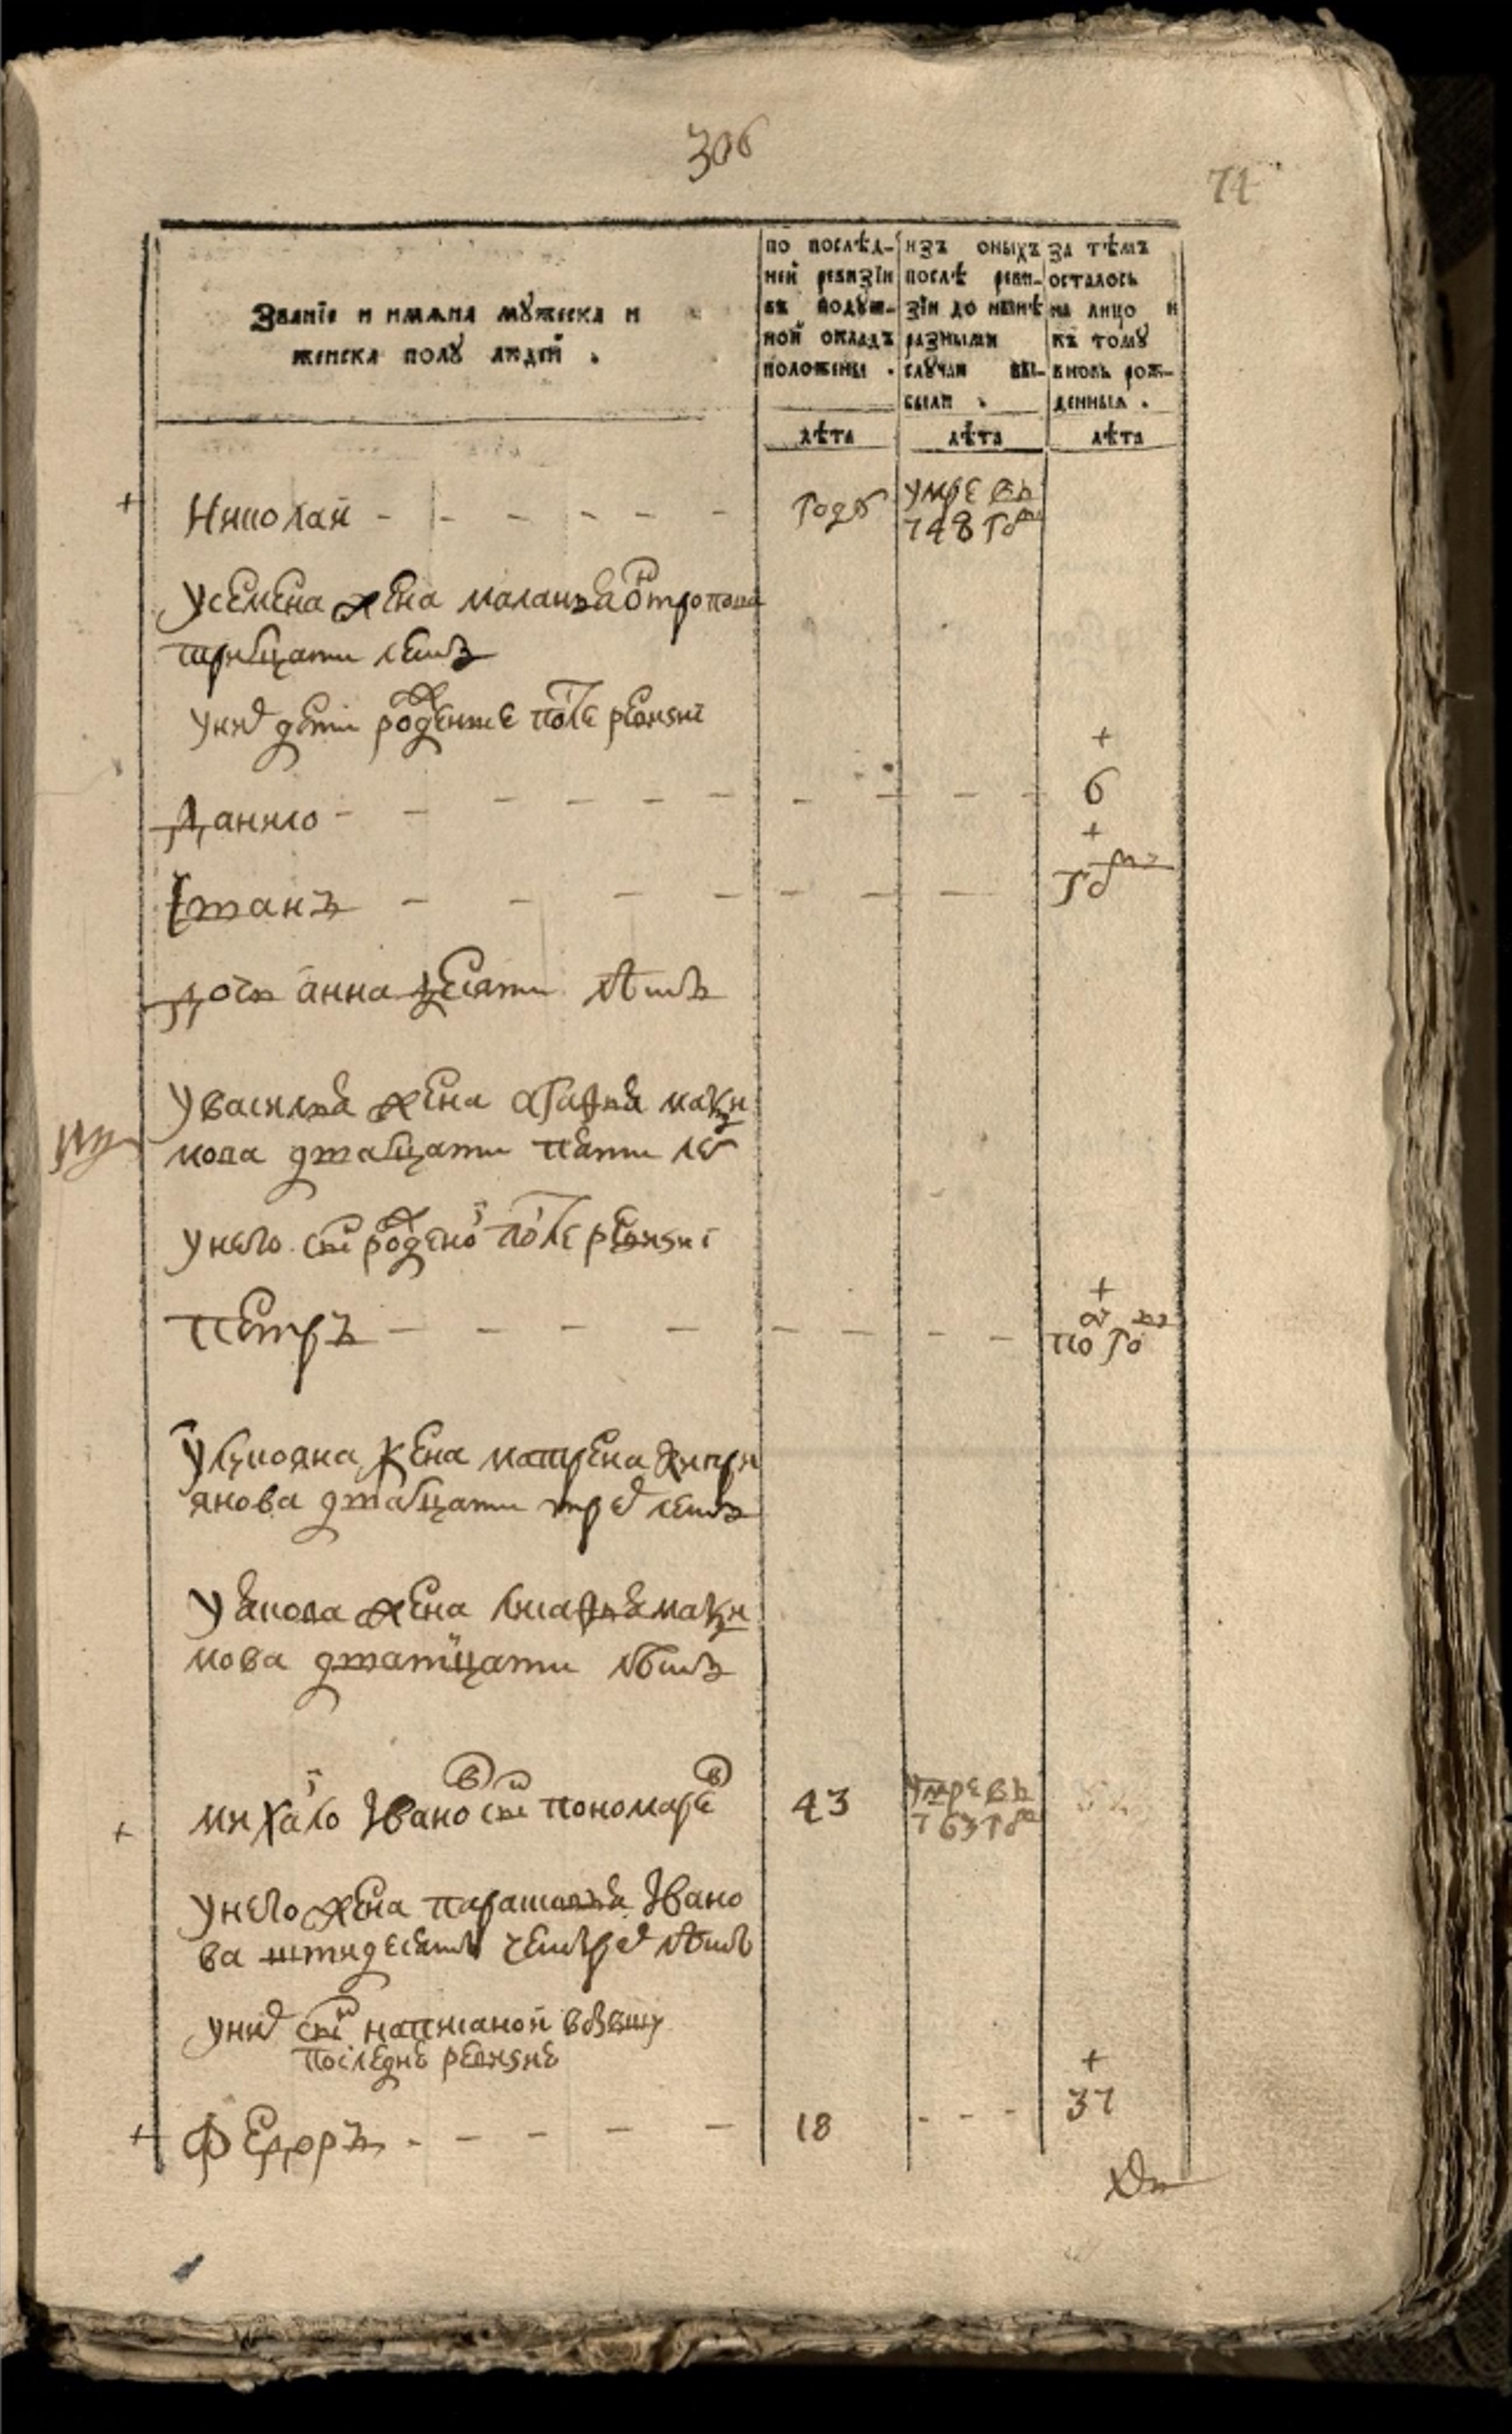 306
74
Званїе и имѧна мꙋжеска и
женска полꙋ людей .
по послѣд-
ней ревизїи
въ подꙋш-
ной окладъ
положены .
изъ оныхъ
послѣ реви-
зїи до нынѣ
разными
слꙋчаи вы-
были .
за тѣмъ
осталось
на лицо и
къ томꙋ
вновь рож-
денныѧ .
лѣта
лѣта
лѣта
Николай - - - - - - году умре въ
748 годъ
усемена жена маланья
тритцати летъ
уних дети рожденые после ревизиі
+
Данило - - - - - - - 6
+
Степанъ - - - - - - - годъ
дочь анна десяти лѣтъ
увасилья жена агафья макси
мова дватцати пети лет
унего сынъ рожденой после ревизиі
+
петръ - - - - - - - по году
жена матрена кипри
янова дватцати трех летъ
уякова жена макси
мова дватцати лѣтъ
михайло Iвановъ сынъ пономаревъ 43 умре въ
763 годъ
унего жена парасковья Iвано
ва четырех лѣтъ
уних сынъ написаной въ бывшу
последнею ревизию
+
Федоръ - - - - - 18 - - - 37